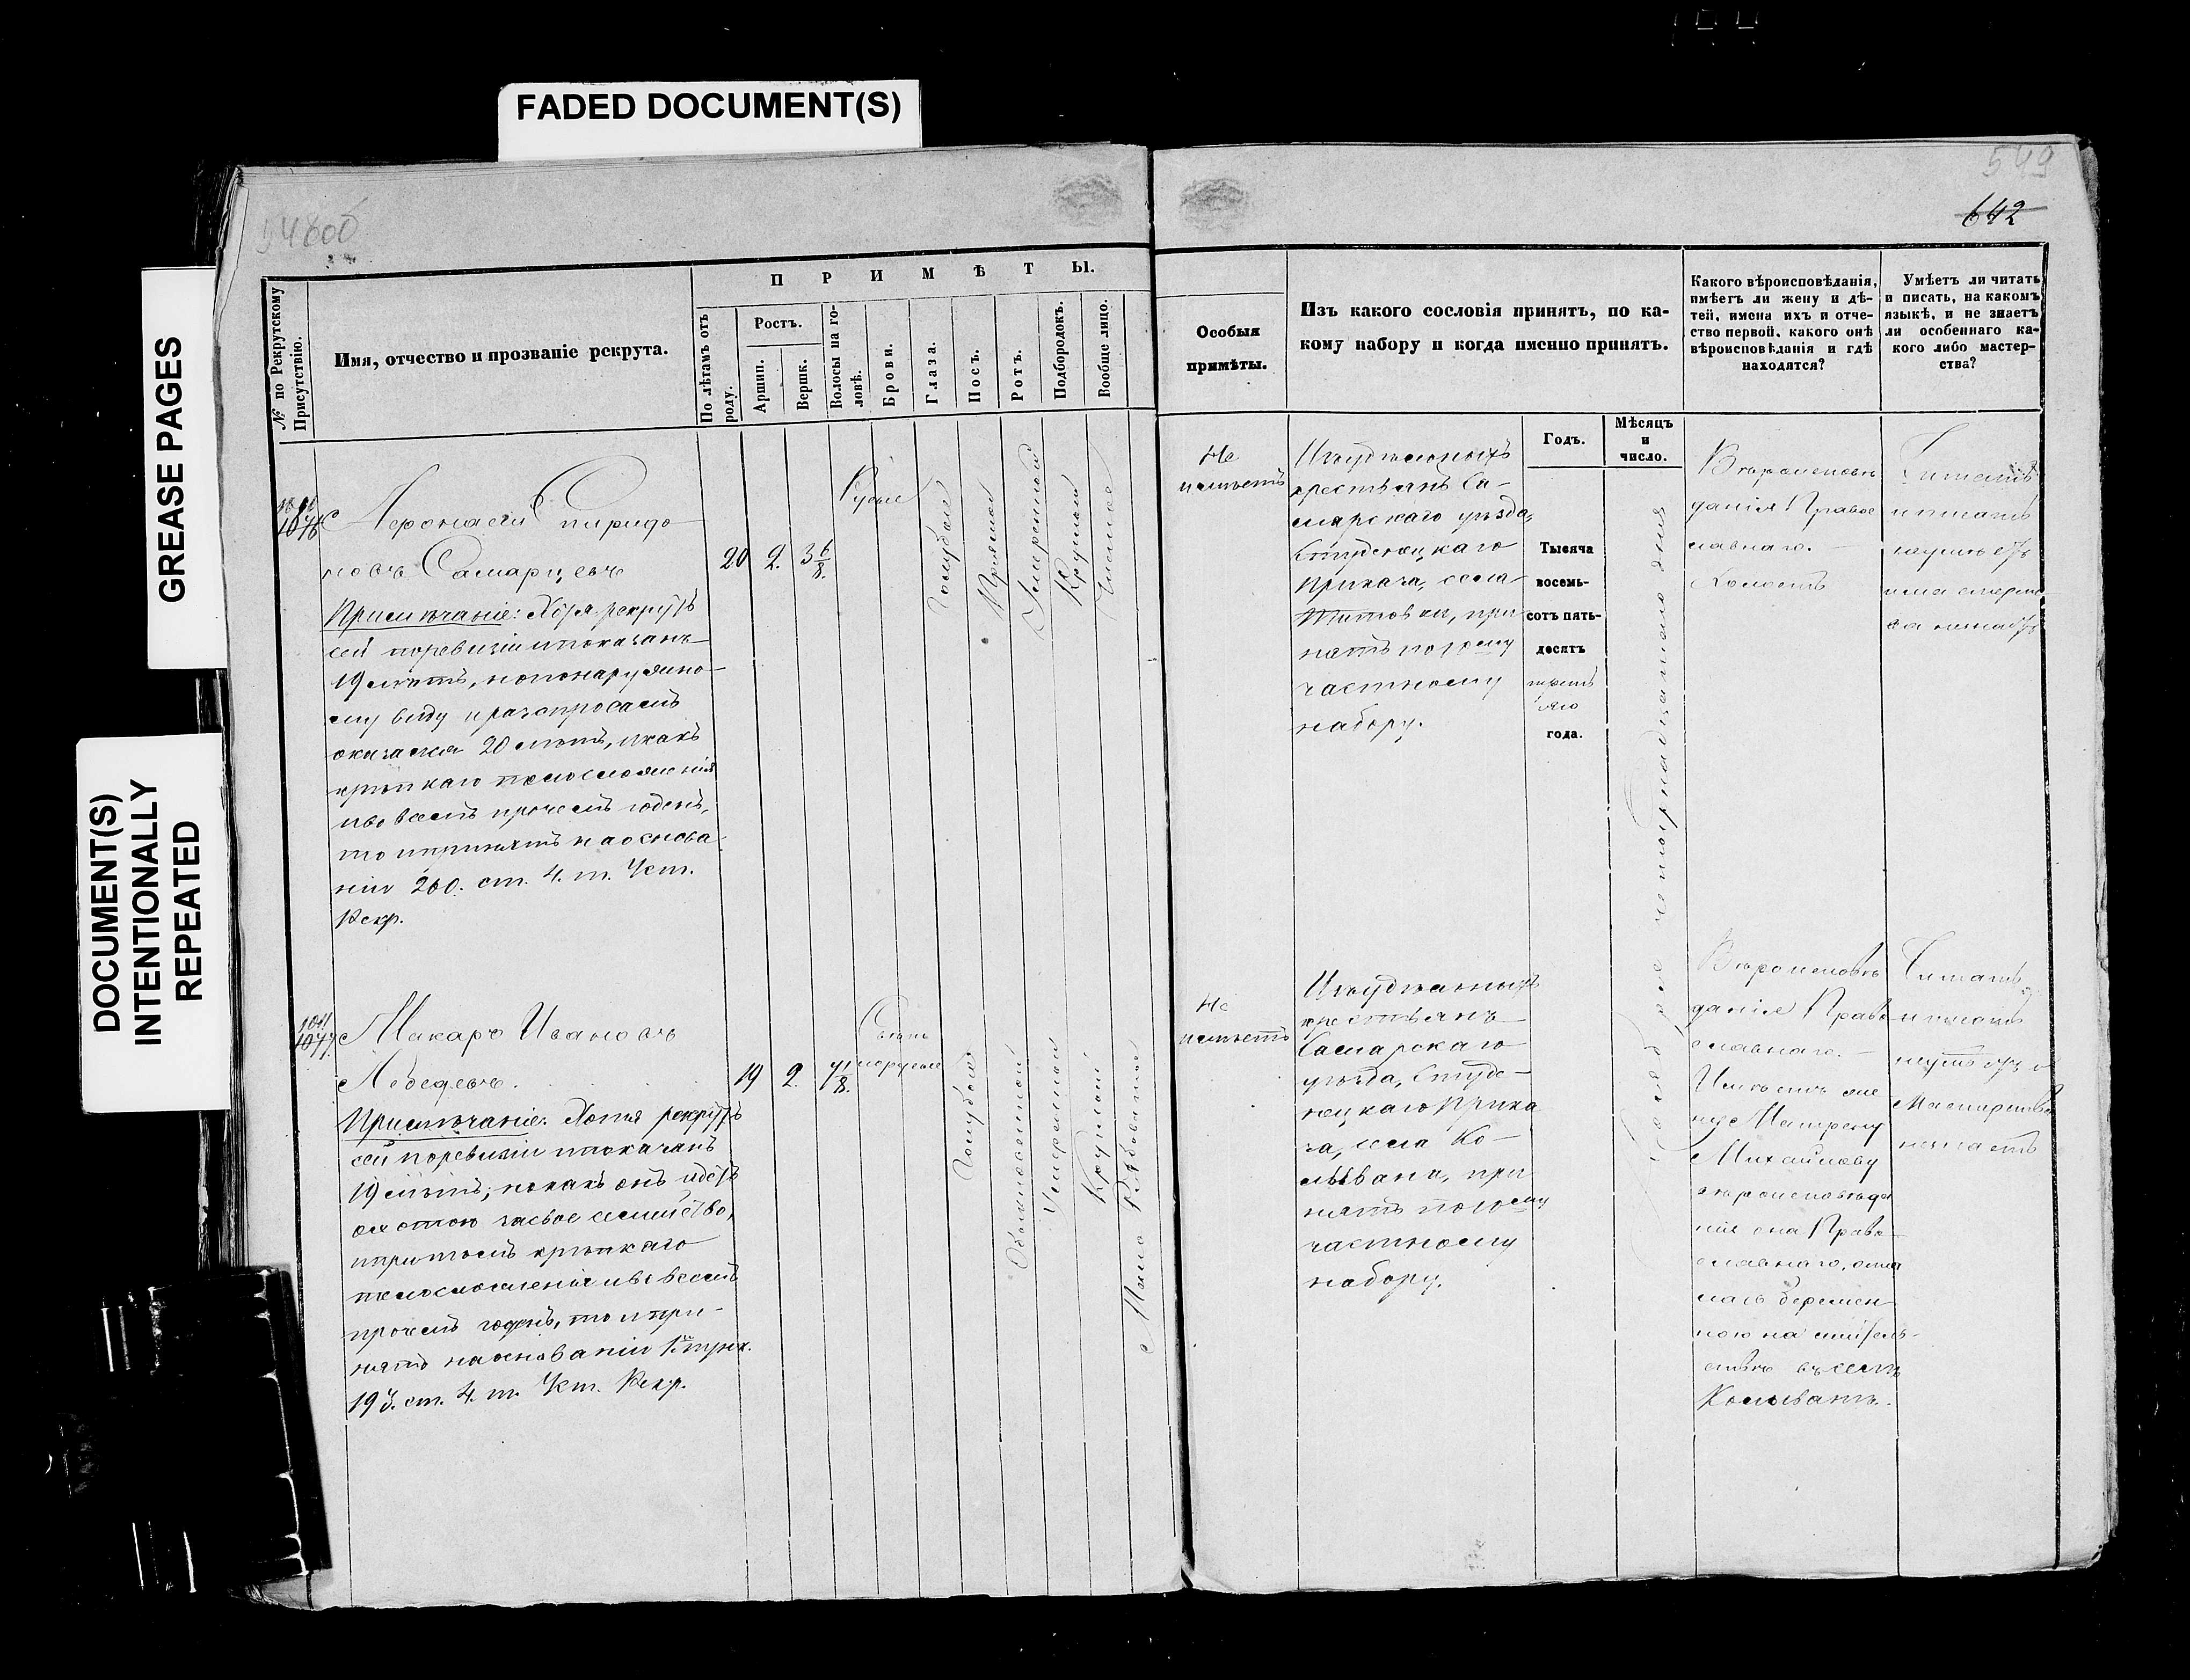 FADED DOCUMENT(S)
GREASE PAGES
DOCUMENT(S)
INTENTIONALLY
REPEATED
549
642
П Р И М Ѣ Т Ы.
№ по Рекрутскому
Присутствію.
Имя, отчество и прозваніе рекрута.
По лѣтамъ отъ
роду.
Ростъ.
Аршин.
Вершк.
Волосы на го-
ловѣ.
Брови.
Глаза.
Носъ.
Ротъ.
Подбородокъ.
Вообще лицо.
Особыя
примѣты.
Изъ какого сословія принятъ, по ка-
кому набору и когда именно принятъ.
Какого вѣроисповѣданія,
имѣетъ ли жену и дѣ-
тей, имена ихъ и отче-
ство первой, какого онѣ
вѣроисповѣданія и гдѣ
находятся?
Умѣетъ ли читать
и писать, на какомъ
языкѣ, и не знаетъ
ли особеннаго ка-
кого либо мастер-
ства?
Годъ.
Мѣсяцъ
и
число.
Аѳонасій Спиридо-
новъ Самарцевъ
Примѣчаніе: Хотя рекрутъ
сей по ревизіи и показанъ
19 лѣтъ, но по наружно-
му виду и разспросамъ
оказался 20 лѣтъ, и какъ
крѣпкаго тѣлосложенія
и во всемъ прочемъ годенъ,
то и принятъ на основа-
ніи 260. ст. 4. т. Уст.
Рекр.
20
2.
3 6/8.
Русые
Голубые
Прямой
Умѣренный
Круглый
Чистое
Не
имѣетъ
Изъ удѣльныхъ
крестьянъ Са-
марскаго уѣзда,
Студенецкаго
Приказа, села
Титовки, при-
нятъ по 10му
частному
набору.
Тысяча
восемь-
сотъ пять-
десятъ
третья
го
года.
четырнадцатаго дня
Вѣроисповѣ
данія Правос
лавнаго.
Холостъ
Читать
и писать
неумѣетъ
и мастерст
ва незнаетъ
Макаръ Ивановъ
Лебедевъ.
Примѣчаніе: Хотя рекрутъ
сей по ревизіи и показанъ
19 лѣтъ, но какъ онъ идетъ
охотою за свое семейство,
и притомъ крѣпкаго
тѣлосложенія и во всемъ
прочемъ годенъ, то и при-
нятъ на основаніи 1 прим.
193. ст. 4. т. Уст. Рекр.
19
2.
4 1/8.
Свѣтло
русые
Голубые
Обыкновенной
Умѣренный
Круглый
Мало Рябоватое
Не
имѣетъ
Изъ удѣльныхъ
крестьянъ
Самарскаго
уѣзда, Студе-
нецкаго Прика
за, села Ко-
лывани, при
нятъ по 10му
частному
набору.
Вѣроисповѣ
данія Право
славнаго.
Имѣетъ же
ну Матрену
Михайлову
вѣроисповѣда
нія она Право
славнаго, оста
лась беремен
ною на житель-
ствѣ въ селѣ
Колывани.
Читать
и писать
неумѣетъ и
Мастерства
незнаетъ